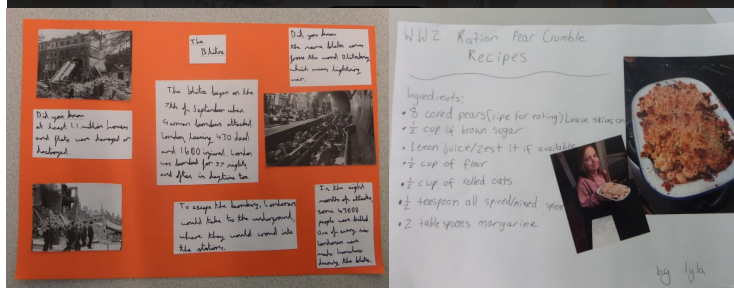 The
Blitz
Did you know
the name blitz comes
from the word blitzkrieg
which means lightning
war.
The blitz began on the
7th of September when
German bombers attacked
London, leaving 430 dead
and 1600 injured. London
was bombed for 57 nights,
and often in daytime too.
Did you know
at least 1.1 million houses
and flats were damaged or
destroyed.
To escape the bombing, Londoners
would take to the underground,
where they would crowd into
the stations.
In the eight
months of attacks,
some 43000
people were killed
One of every six
Londoners was
made homeless
during the blitz.
WW2 Ration Pear Crumble
Recipes
Ingredients:
• 8 cored pears(ripe for eating) Leave skins on
• 1/2 cup of brown sugar
• Lemon juice/zest it if available
• 1/2 cup of flour
• 1/2 cup of rolled oats
• 1/2 teaspoon all spiced/mixed spice
• 2 tablespoons margarine
by lyla